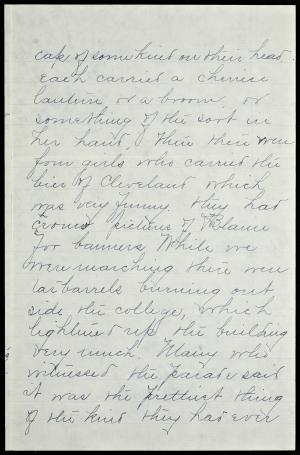 cap of some kind on their head.
Each carried a chinese
lantern, or a broom, or
something of the sort in
her hand. Then there were
four girls who carried the
bier of Cleveland which
was very funny. They had
pictures of Blaine
for banners. While we
were marching there were
tarbarrels burning out
side, the college, which
lightened up the building
very much. Many who
witnessed the parade said
it was the prettiest thing
of the kind they had ever